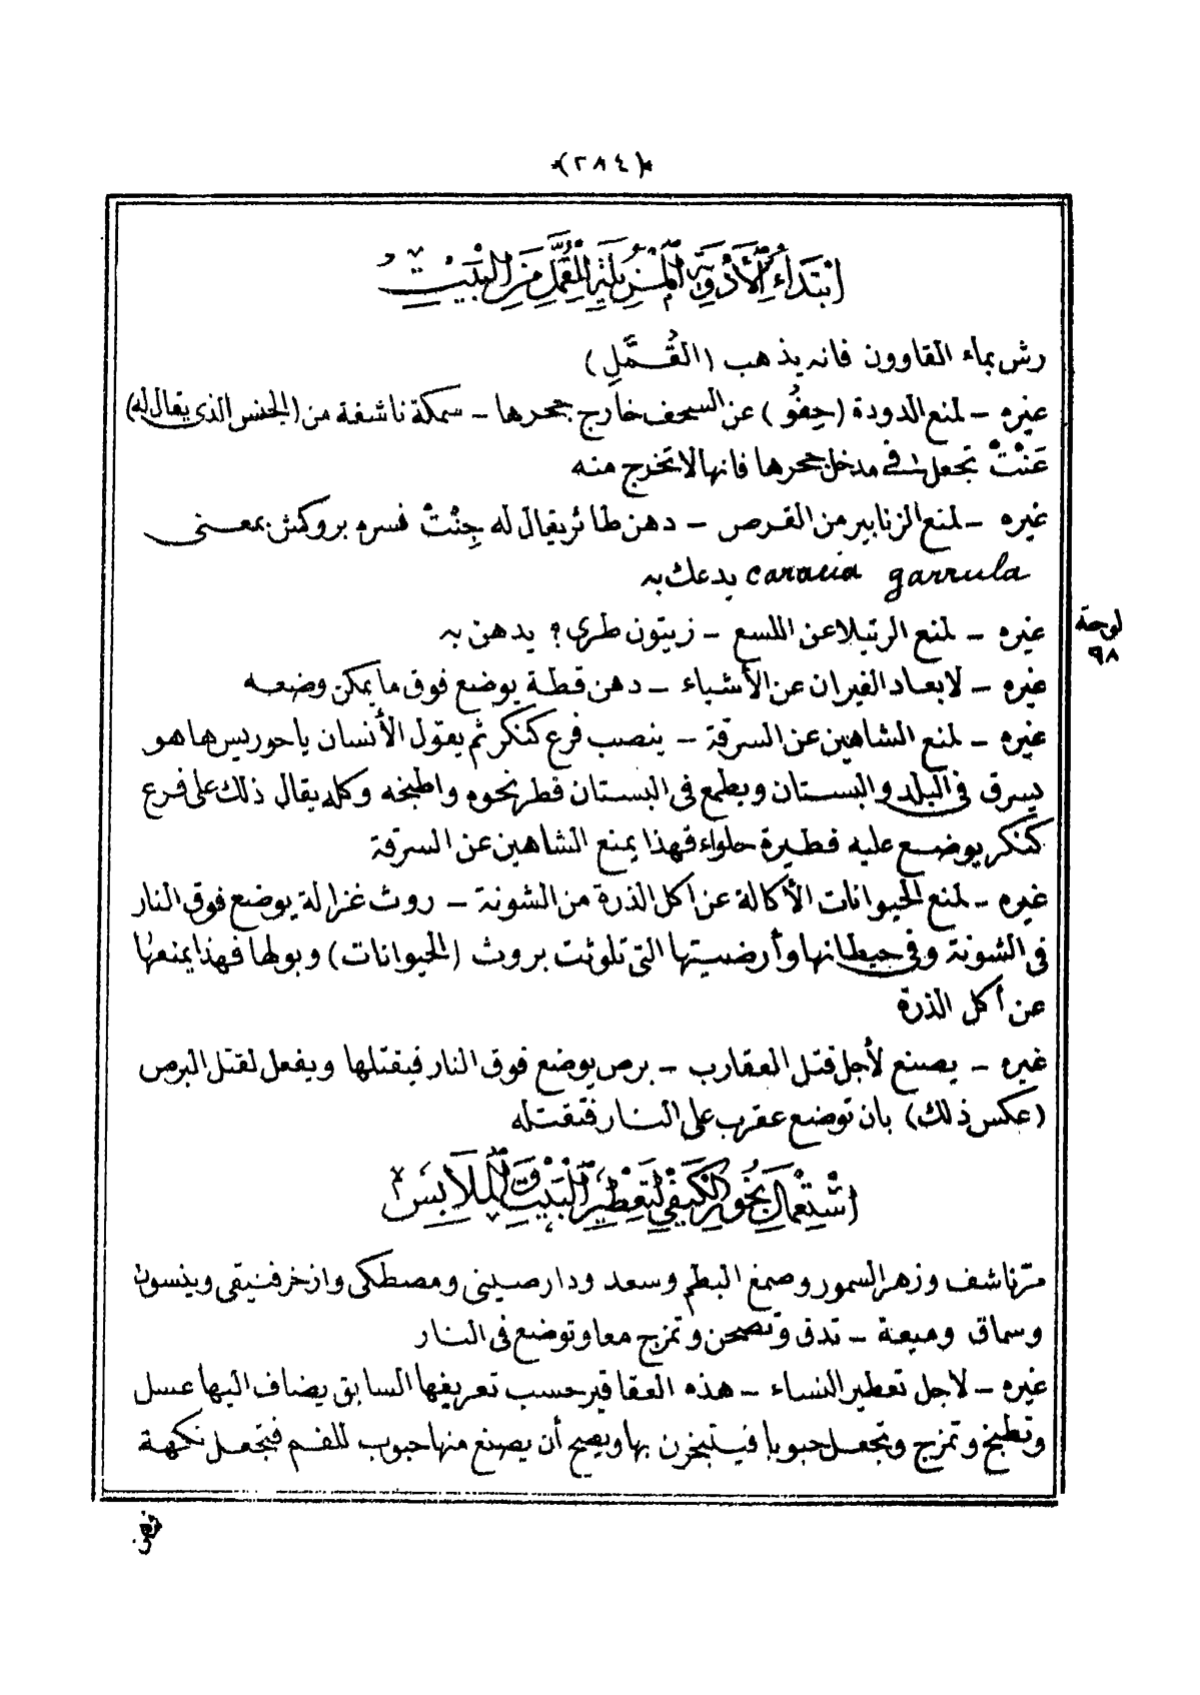 *(٢٨٤)*
ابْتِدَاءُ الْأَدْوِيَةِ الْمُزِيلَةِ لِلْقُمَّلِ مِنَ الْبَيْتِ
رش بماء القاوون فانه يذهب (القُمَّلِ)
غيره – لمنع الدودة (حِفوُ) عن السحف خارج جحرها – سمكة ناشفة من (الجنس الذى يقال له)
عَنْتْ تجعل فى مدخل جحرها فانها لا تخرج منه
غيره – لمنع الزنابير من القرص – دهن طائر يقال له جِنْتْ فسره بروكش بمعنى
caracia garrula يدعك به
لوحة ٩٨
غيره – لمنع الرتيلا عن اللسع – زيتون طرى؟ يدهن به
غيره – لابعاد الفيران عن الأشياء – دهن قطة يوضع فوق ما يمكن وضعه
غيره – لمنع الشاهين عن السرقة – ينصب فرع كنكر ثم يقول الأنسان يا حوريس ها هو
يسرق فى البلد والبستان ويطمع فى البستان فطر نحوه واطبخه وكله يقال ذلك على فرع
كنكر يوضع عليه فطيرة حلواء فهذا يمنع الشاهين عن السرقة
غيره – لمنع الحيوانات الأكالة عن اكل الذرة من الشونة – روث غزالة يوضع فوق النار
فى الشونة وفى حيطانها وأرضيتها التى تلوثت بروث (الحيوانات) وبولها فهذا يمنعها
عن أكل الذرة
غيره – يصنع لأجل قتل العقارب – برص يوضع فوق النار فيقتلها ويفعل لقتل البرص
(عكس ذلك) بان توضع عقرب على النار فتقتله
اسْتِعْمَالُ بَخُورِ الْكِيفِي لِتَعْطِيرِ الْبَيْتِ وَالْمَلَابِسْ
مرّ ناشف وزهر السمور وصمغ البطم وسعد ودارصينى ومصطكى واذخر فنيقى وينسون
وسماق وميعة – تدق وتصحن وتمزج معا وتوضع فى النار
غيره – لاجل تعطير النساء – هذه العقاقير حسب تعريفها السابق يضاف اليها عسل
وتطبخ وتمزج وتجعل حبوبا فيتبخرن بها ويصح أن يصنع منها حبوب للفم فتجعل نكهة